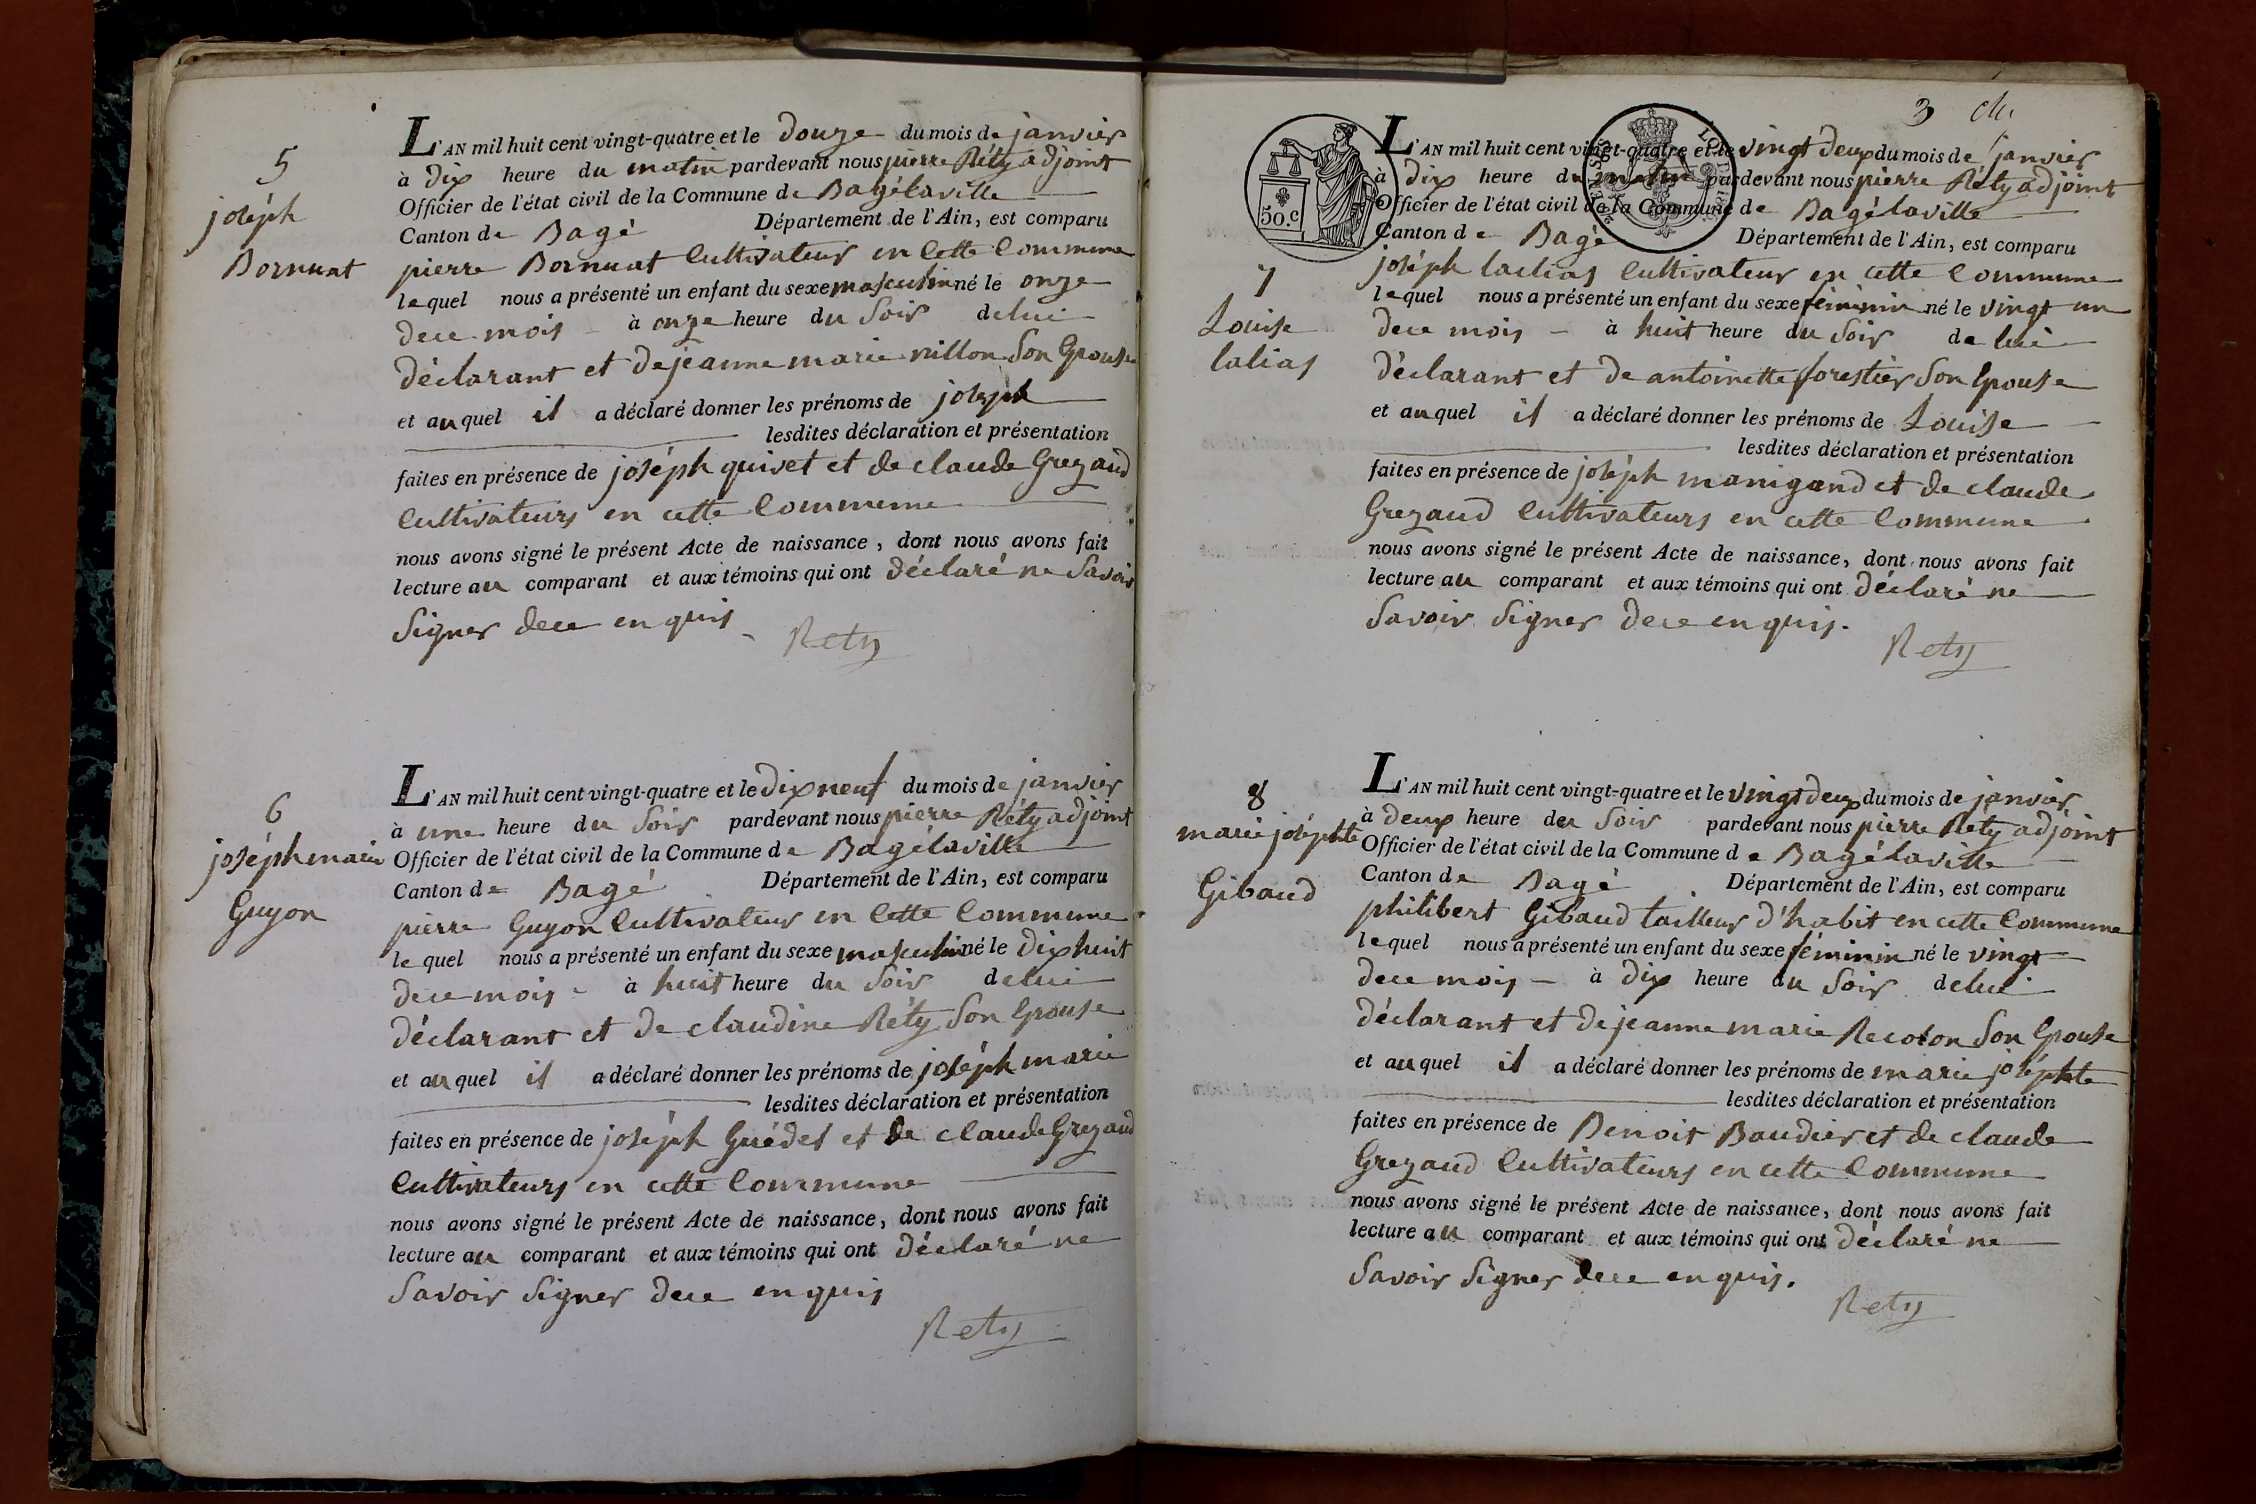 5
joséph
Bornuat
L'AN mil huit cent vingt-quatre et le douze du mois de janvier
à dix heure du matin pardevant nous pierre Réty adjoint
Officier de l'état civil de la Commune de Bagélaville
Canton de Bagé Département de l'Ain, est comparu
pierre Bornuat Cultivateur en Cette Commune
lequel nous a présenté un enfant du sexe masculin né le onze
dece mois à onze heure du Soir delui
déclarant et de jeanne marie nillon Son Epouse
et auquel il a déclaré donner les prénoms de joseph
lesdites déclaration et présentation
faites en présence de joséph quivet et de claude Grezaud
Cultivateurs en cette Commune
nous avons signé le présent Acte de naissance, dont nous avons fait
lecture au comparant et aux témoins qui ont déclaré ne Savoir
Signer dece enquis
Rety
6
joséph marie
Guyon
L'AN mil huit cent vingt-quatre et le dix neuf du mois de janvier
à une heure du Soir pardevant nous pierre Réty adjoint
Officier de l'état civil de la Commune de Bagélaville
Canton de Bagé Département de l'Ain, est comparu
pierre Guyon Cultivateur en Cette Commune
lequel nous a présenté un enfant du sexe masculin né le dix huit
dece mois à huit heure du Soir delui
déclarant et de claudine Réty Son Epouse
et auquel il a déclaré donner les prénoms de joséph marie
lesdites déclaration et présentation
faites en présence de joséph Guédet et de claude Grezaud
Cultivateurs en cette Commune
nous avons signé le présent Acte de naissance, dont nous avons fait
lecture au comparant et aux témoins qui ont déclaré ne
Savoir Signer dece enquis
Rety
3
50.c
7
Louise
lalias
L'AN mil huit cent vingt-quatre et le vingt deux du mois de janvier
à dix heure du matin pardevant nous pierre Réty adjoint
Officier de l'état civil de la Commune de Bagélaville
Canton de Bagé Département de l'Ain, est comparu
joséph lalias Cultivateur en cette Commune
lequel nous a présenté un enfant du sexe féminin né le vingt un
dece mois à huit heure du Soir de lui
déclarant et de antoinette forestier Son Epouse
et auquel il a déclaré donner les prénoms de Louise
lesdites déclaration et présentation
faites en présence de joséph manigand et de claude
Grezaud Cultivateurs en cette Commune
nous avons signé le présent Acte de naissance, dont nous avons fait
lecture au comparant et aux témoins qui ont déclaré ne
Savoir Signer dece enquis.
Rety
8
marie joséphte
Gibaud
L'AN mil huit cent vingt-quatre et le vingt deux du mois de janvier
à deux heure du Soir pardevant nous pierre Réty adjoint
Officier de l'état civil de la Commune de Bagélaville
Canton de Bagé Département de l'Ain, est comparu
philibert Gibaud tailleur d'habit en cette Commune
lequel nous a présenté un enfant du sexe féminin né le vingt
dece mois à dix heure du Soir delui
déclarant et de jeanne marie Recoton Son Epouse
et auquel il a déclaré donner les prénoms de marie joséphte
lesdites déclaration et présentation
faites en présence de Benoit Baudier et de claude
Grezaud Cultivateurs en cette Commune
nous avons signé le présent Acte de naissance, dont nous avons fait
lecture au comparant et aux témoins qui ont déclaré ne
Savoir Signer dece enquis.
Rety